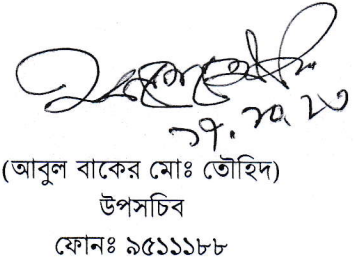 ১৭.১০.১৩
(আবুল বাকের মোঃ তৌহিদ)
উপসচিব
ফোনঃ ৯৫১১১৮৮